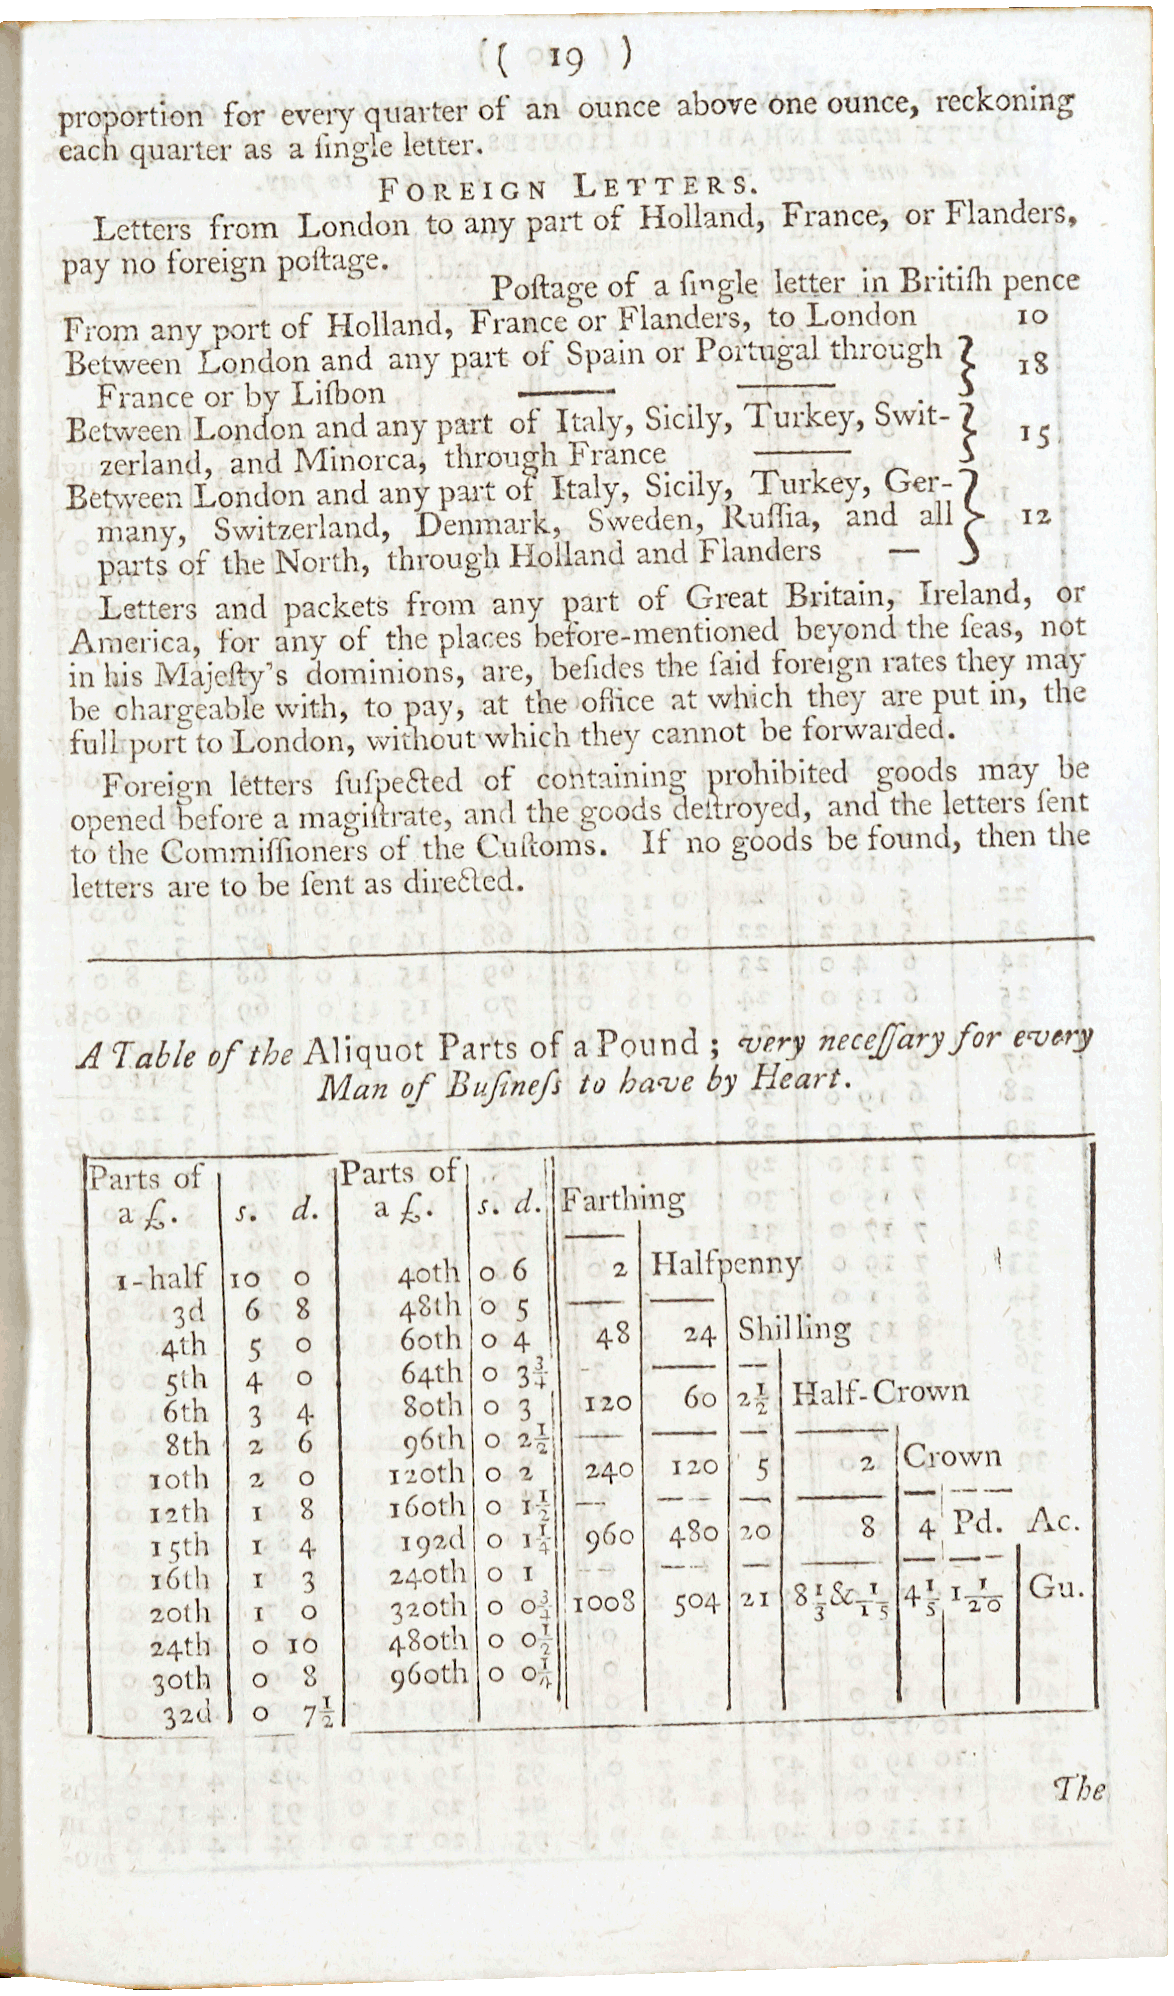 ( 19 )
proportion for every quarter of an ounce above one ounce, reckoning
each quarter as a ſingle letter.
FOREIGN LETTERS.
Letters from London to any part of Holland, France, or Flanders,
pay no foreign poſtage.
Poſtage of a ſingle letter in Britiſh pence
From any port of Holland, France or Flanders, to London 10
Between London and any part of Spain or Portugal through } 18
France or by Liſbon —— ——
Between London and any part of Italy, Sicily, Turkey, Swit- } 15
zerland, and Minorca, through France ——
Between London and any part of Italy, Sicily, Turkey, Ger- }
many, Switzerland, Denmark, Sweden, Ruſſia, and all 12
parts of the North, through Holland and Flanders —
Letters and packets from any part of Great Britain, Ireland, or
America, for any of the places before-mentioned beyond the ſeas, not
in his Majeſty's dominions, are, beſides the ſaid foreign rates they may
be chargeable with, to pay, at the office at which they are put in, the
full port to London, without which they cannot be forwarded.
Foreign letters ſuſpected of containing prohibited goods may be
opened before a magiſtrate, and the goods deſtroyed, and the letters ſent
to the Commiſſioners of the Cuſtoms. If no goods be found, then the
letters are to be ſent as directed.
A Table of the Aliquot Parts of a Pound ; very neceſſary for every
Man of Buſineſs to have by Heart.
Parts of
a £. s. d.
1-half 10 0
3d 6 8
4th 5 0
5th 4 0
6th 3 4
8th 2 6
10th 2 0
12th 1 8
15th 1 4
16th 1 3
20th 1 0
24th 0 10
30th 0 8
32d 0 7½
Parts of
a £. s. d.
40th 0 6
48th 0 5
60th 0 4
64th 0 3¾
80th 0 3
96th 0 2½
120th 0 2
160th 0 1½
192d 0 1¼
240th 0 1
320th 0 0¾
480th 0 0½
960th 0 0¼
Farthing
2 Halfpenny
48 24 Shilling
120 60 2½ Half-Crown
240 120 5 2 Crown
960 480 20 8 4 Pd. Ac.
1008 504 21 8⅓&1/15 4⅕ 1 1/20 Gu.
The